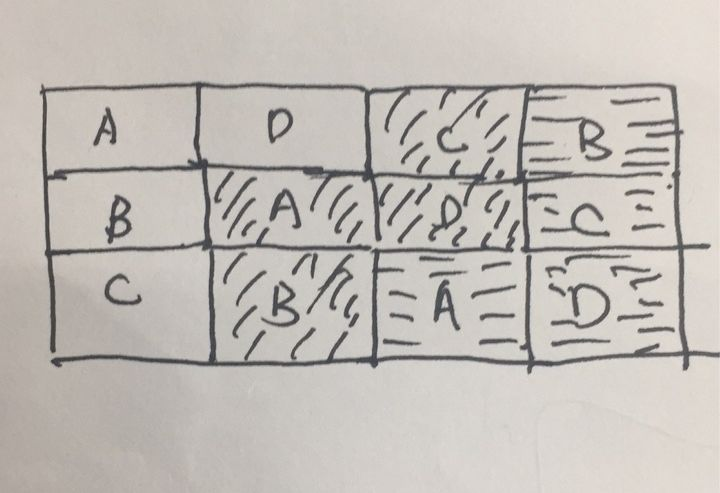 A D C B
B A D C
C B A D